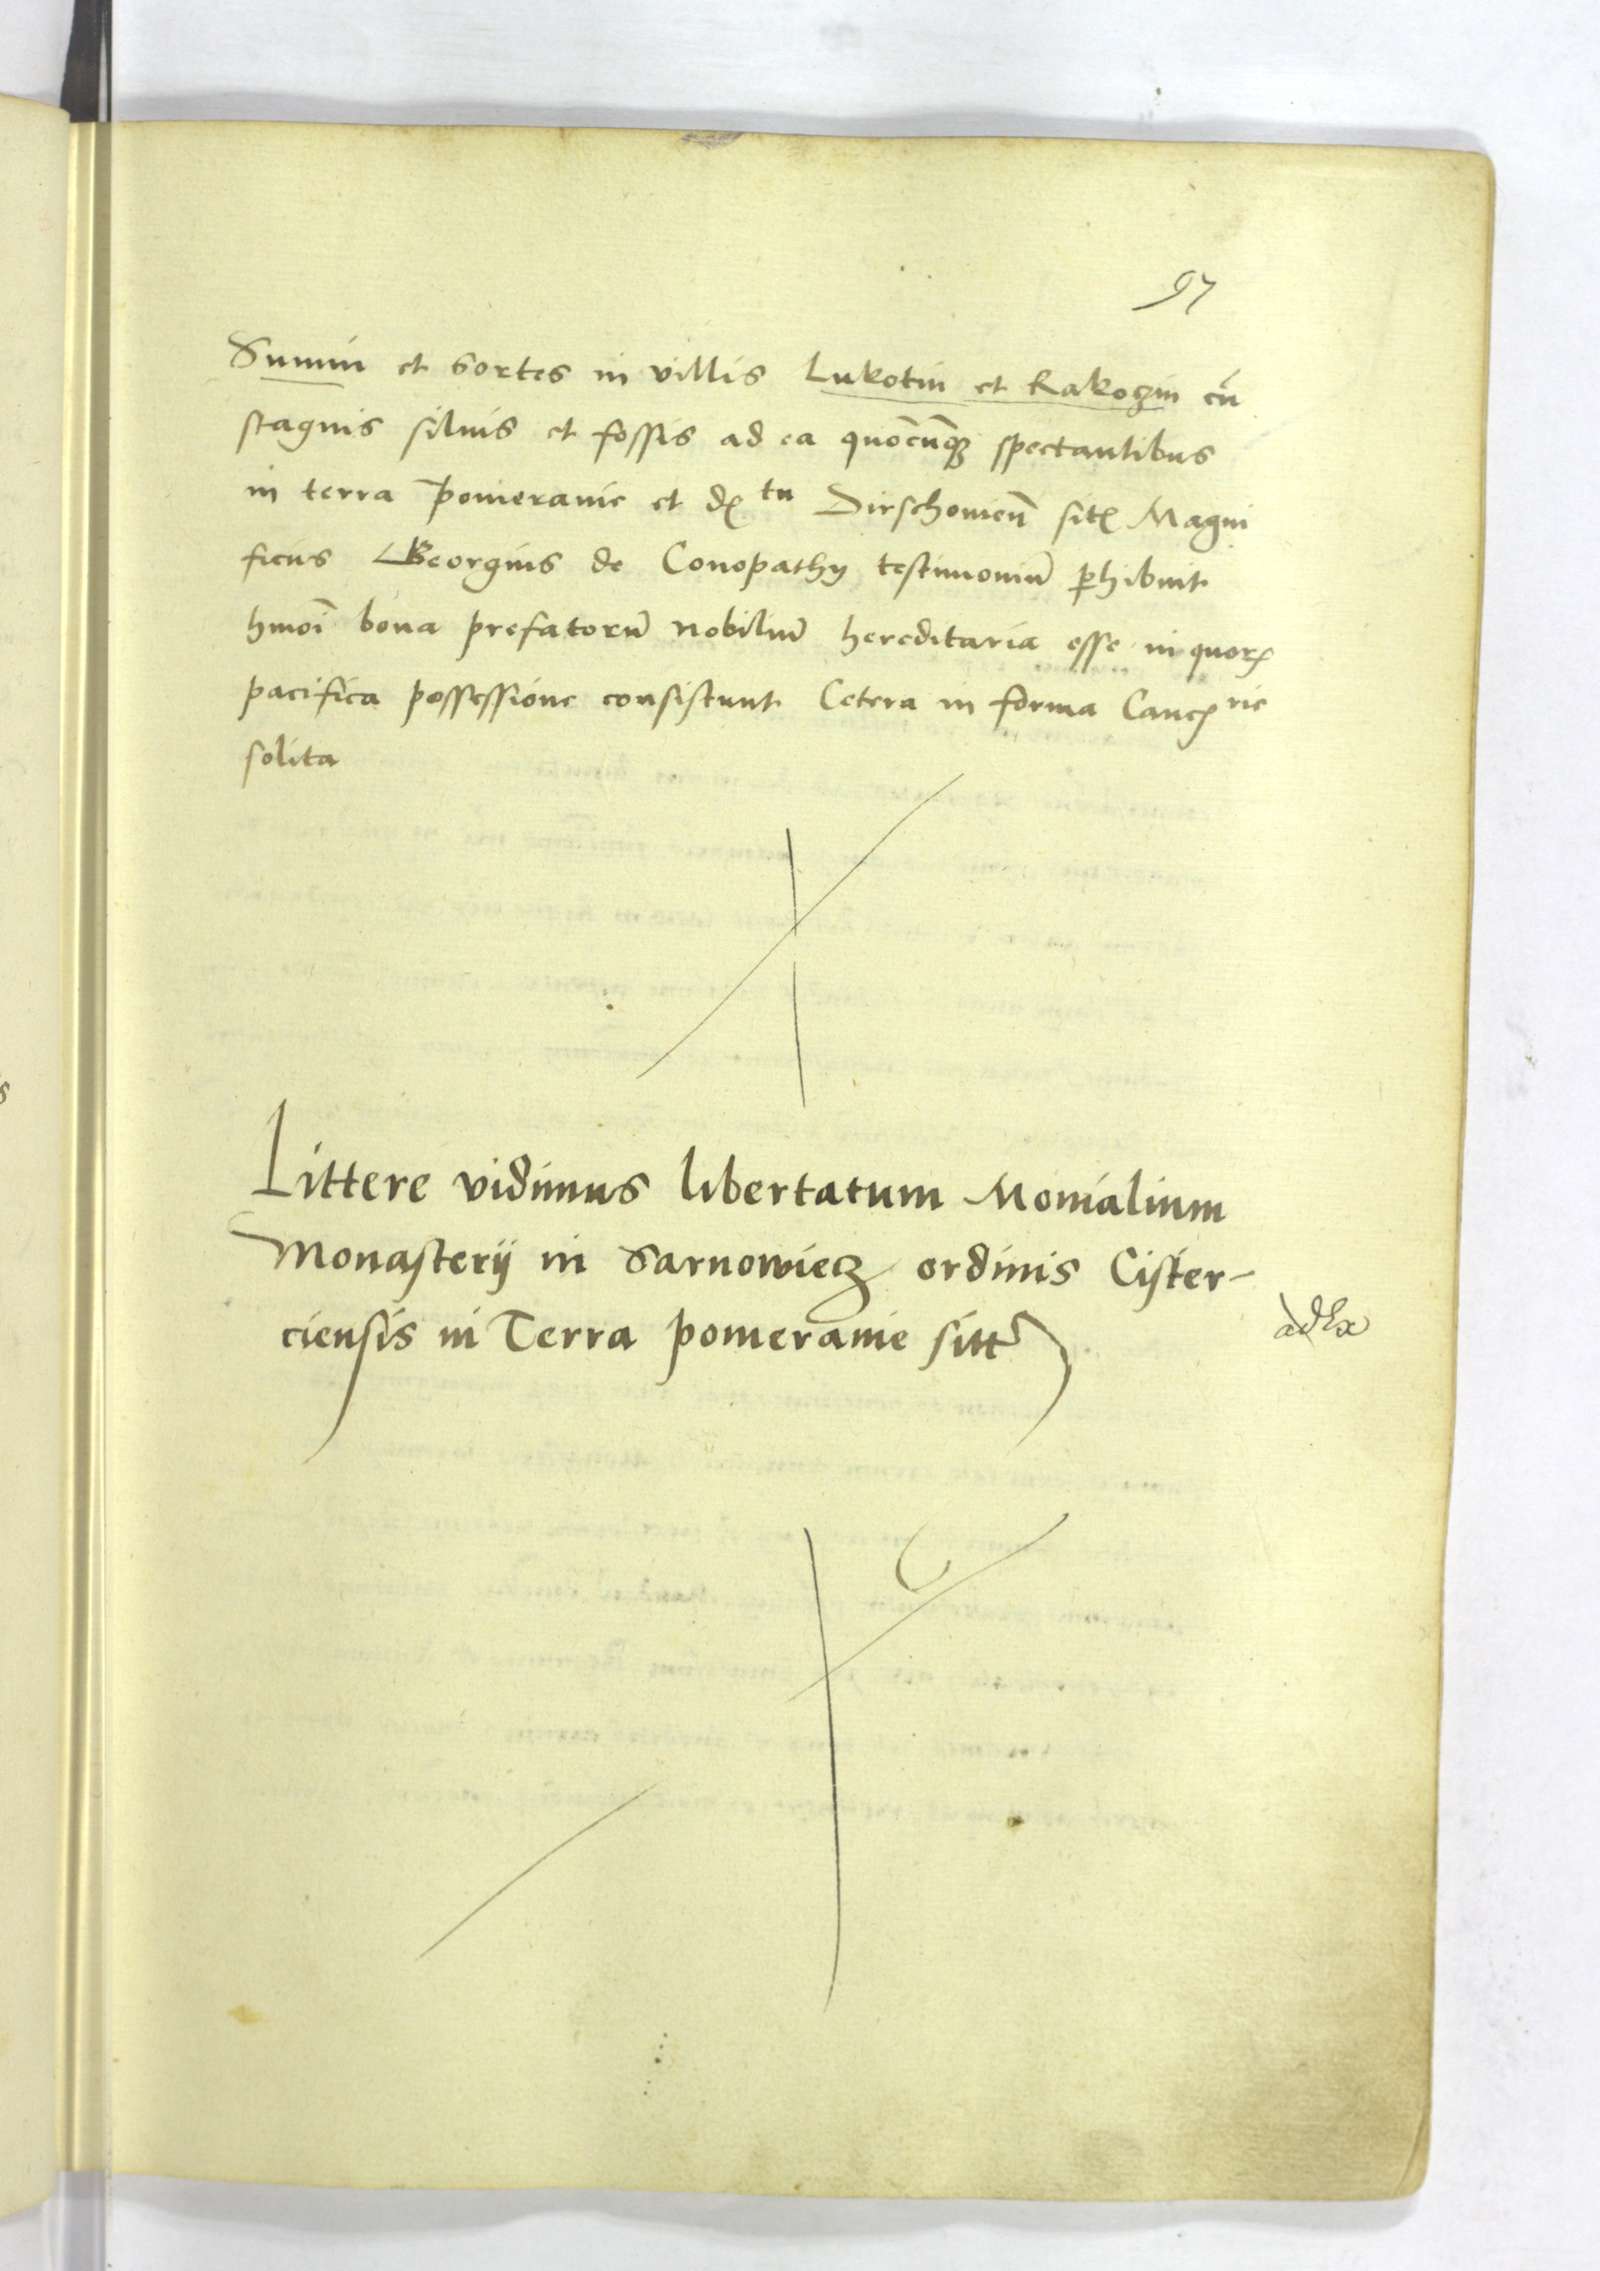 97
Sumin et sortes in villis Lukotin et Rakoczin cū
stagnis siluis et fossis ad ea quōcūqꝫ spectantibus
in terra pomeranie et dꝭtu Dirschouieñ sitꝭ Magni
ficus Georgius de Conopathy testimoniū ꝑhibuit
hmōi bona prefatorū nobiliū hereditaria esse in quorꝭ
pacifica possessione consistunt. Cetera in forma Cancꝭrie
solita
Littere vidimus libertatum Monialium
Monasterij in Sarnowiecz ordinis Cister-
ciensis in Terra pomeranie sitt